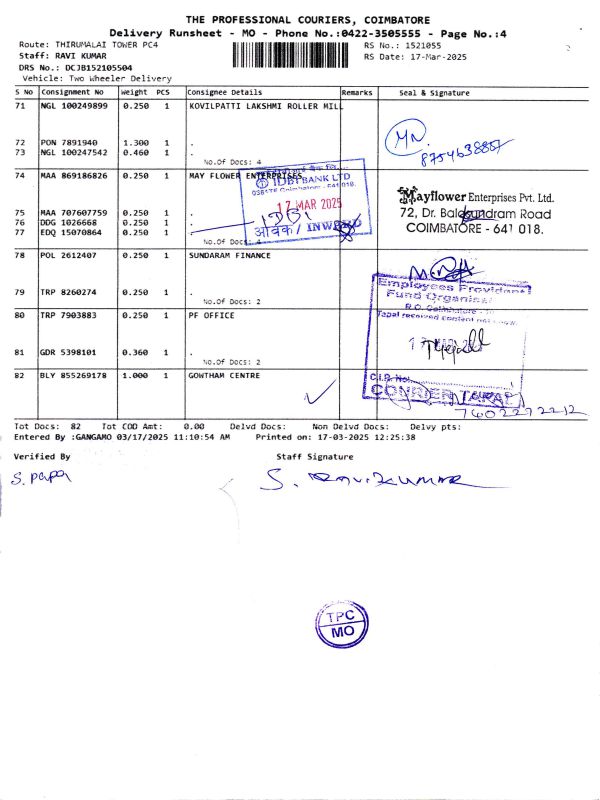 THE PROFESSIONAL COURIERS, COIMBATORE
Delivery Runsheet - MO - Phone No.:0422-3505555 - Page No.:4
Route: THIRUMALAI TOWER PC4
RS No.: 1521055
Staff: RAVI KUMAR
RS Date: 17-Mar-2025
DRS No.: DCJB152105504
Vehicle: Two Wheeler Delivery
S No Consignment No Weight PCS Consignee Details Remarks Seal & Signature
71 NGL 100249899 0.250 1 KOVILPATTI LAKSHMI ROLLER MILL
72 PON 7891940 1.300 1 .
73 NGL 100247542 0.460 1 .
No.Of Docs: 4
74 MAA 869186826 0.250 1 MAY FLOWER ENTERPRISES
IDBI BANK LTD
17 MAR 2025
IDBI
आवक / INWARD
Mayflower Enterprises Pvt. Ltd.
72, Dr. Balasundram Road
COIMBATORE - 641 018.
75 MAA 707607759 0.250 1 .
76 DDG 1026668 0.250 1 .
77 EDQ 15070864 0.250 1 .
No.Of Docs: 4
78 POL 2612407 0.250 1 SUNDARAM FINANCE
79 TRP 8260274 0.250 1 .
No.Of Docs: 2
Employees Provident
Fund Organisa
80 TRP 7903883 0.250 1 PF OFFICE
81 GDR 5398101 0.360 1 .
No.Of Docs: 2
82 BLY 855269178 1.000 1 GOWTHAM CENTRE
C.I.R. No.
7402272212
Tot Docs: 82 Tot COD Amt: 0.00 Delvd Docs: Non Delvd Docs: Delvy pts:
Entered By :GANGAMO 03/17/2025 11:10:54 AM Printed on: 17-03-2025 12:25:38
Verified By Staff Signature
S. papa S. Ravikumar
TPC
MO